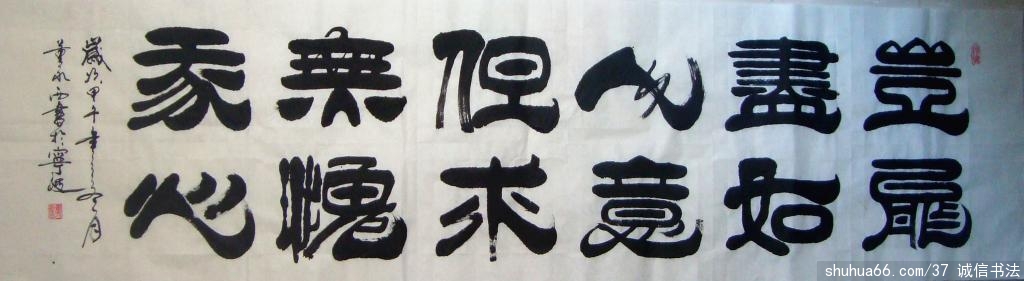 豈能
盡如
人意
但求
無愧
我心
歲次甲午年之冬月
書於寧
shuhua66.com/37 诚信书法